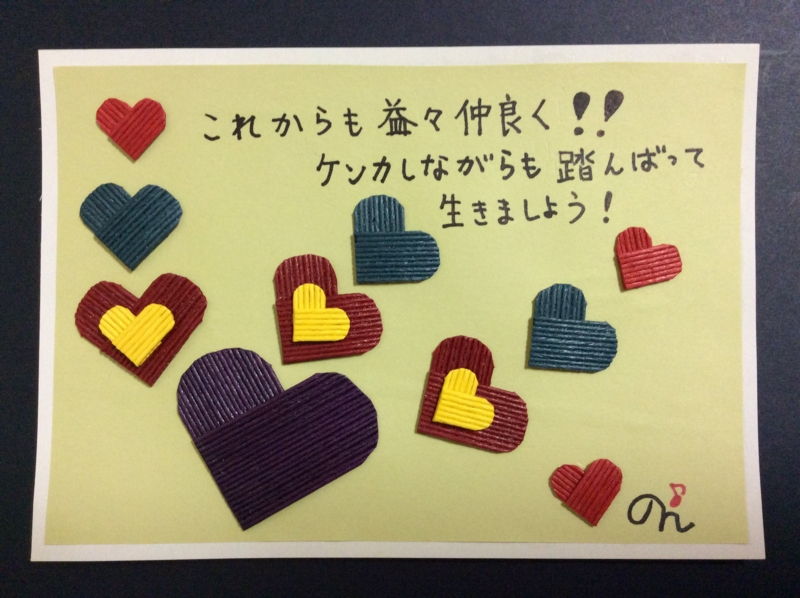 これからも益々仲良く!!
ケンカしながらも踏んばって
生きましょう!
のん